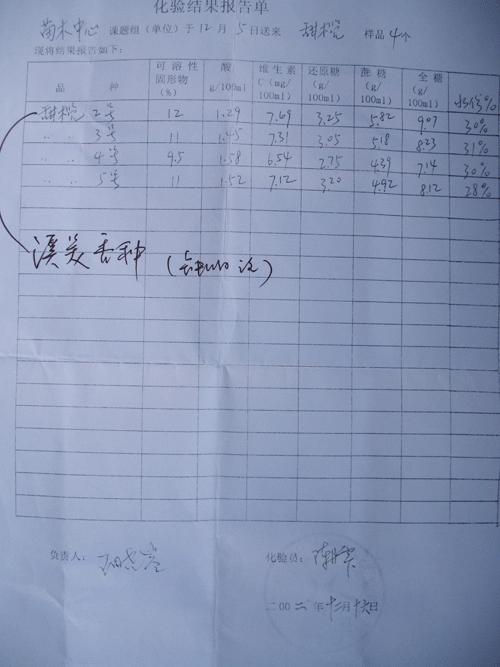 化验结果报告单
苗木中心 课题组(单位)于12月5日送来 甜橙 样品4个
现将结果报告如下:
品 种 可溶性固形物(%) 酸g/100ml 维生素C(mg/100ml) 还原糖(g/100ml) 蔗糖(g/100ml) 全糖(g/100ml) 水份%
甜橙2号 12 1.29 7.69 3.25 5.82 9.07 30%
〃 〃 3号 11 1.45 7.31 3.05 5.18 8.23 31%
〃 〃 4号 9.5 1.58 6.54 2.75 4.39 7.14 30%
〃 〃 5号 11 1.52 7.12 3.20 4.92 8.12 28%
香种
负责人:
化验员:
二00二年十二月十六日